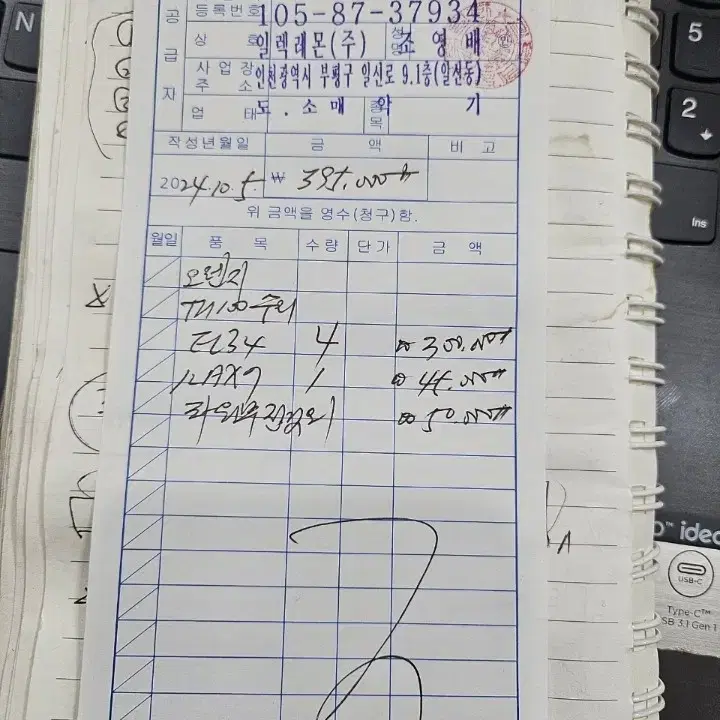 N
5
2
Ins
공급자
등록번호 105-87-37934
상호 일렉레몬(주) 성명 조영배
사업장주소 인천광역시 부평구 일신로 9.1층(일신동)
업태 도.소매 종목 악기
작성년월일 금액 비고
2024.10.5. ₩ 395.000
위 금액을 영수(청구)함.
월일 품목 수량 단가 금액
오렌지
TH100 수리
EL34 4 300.000
12AX7 1 45.000
50.000
idea
USB-C
Type-C™
SB 3.1 Gen 1